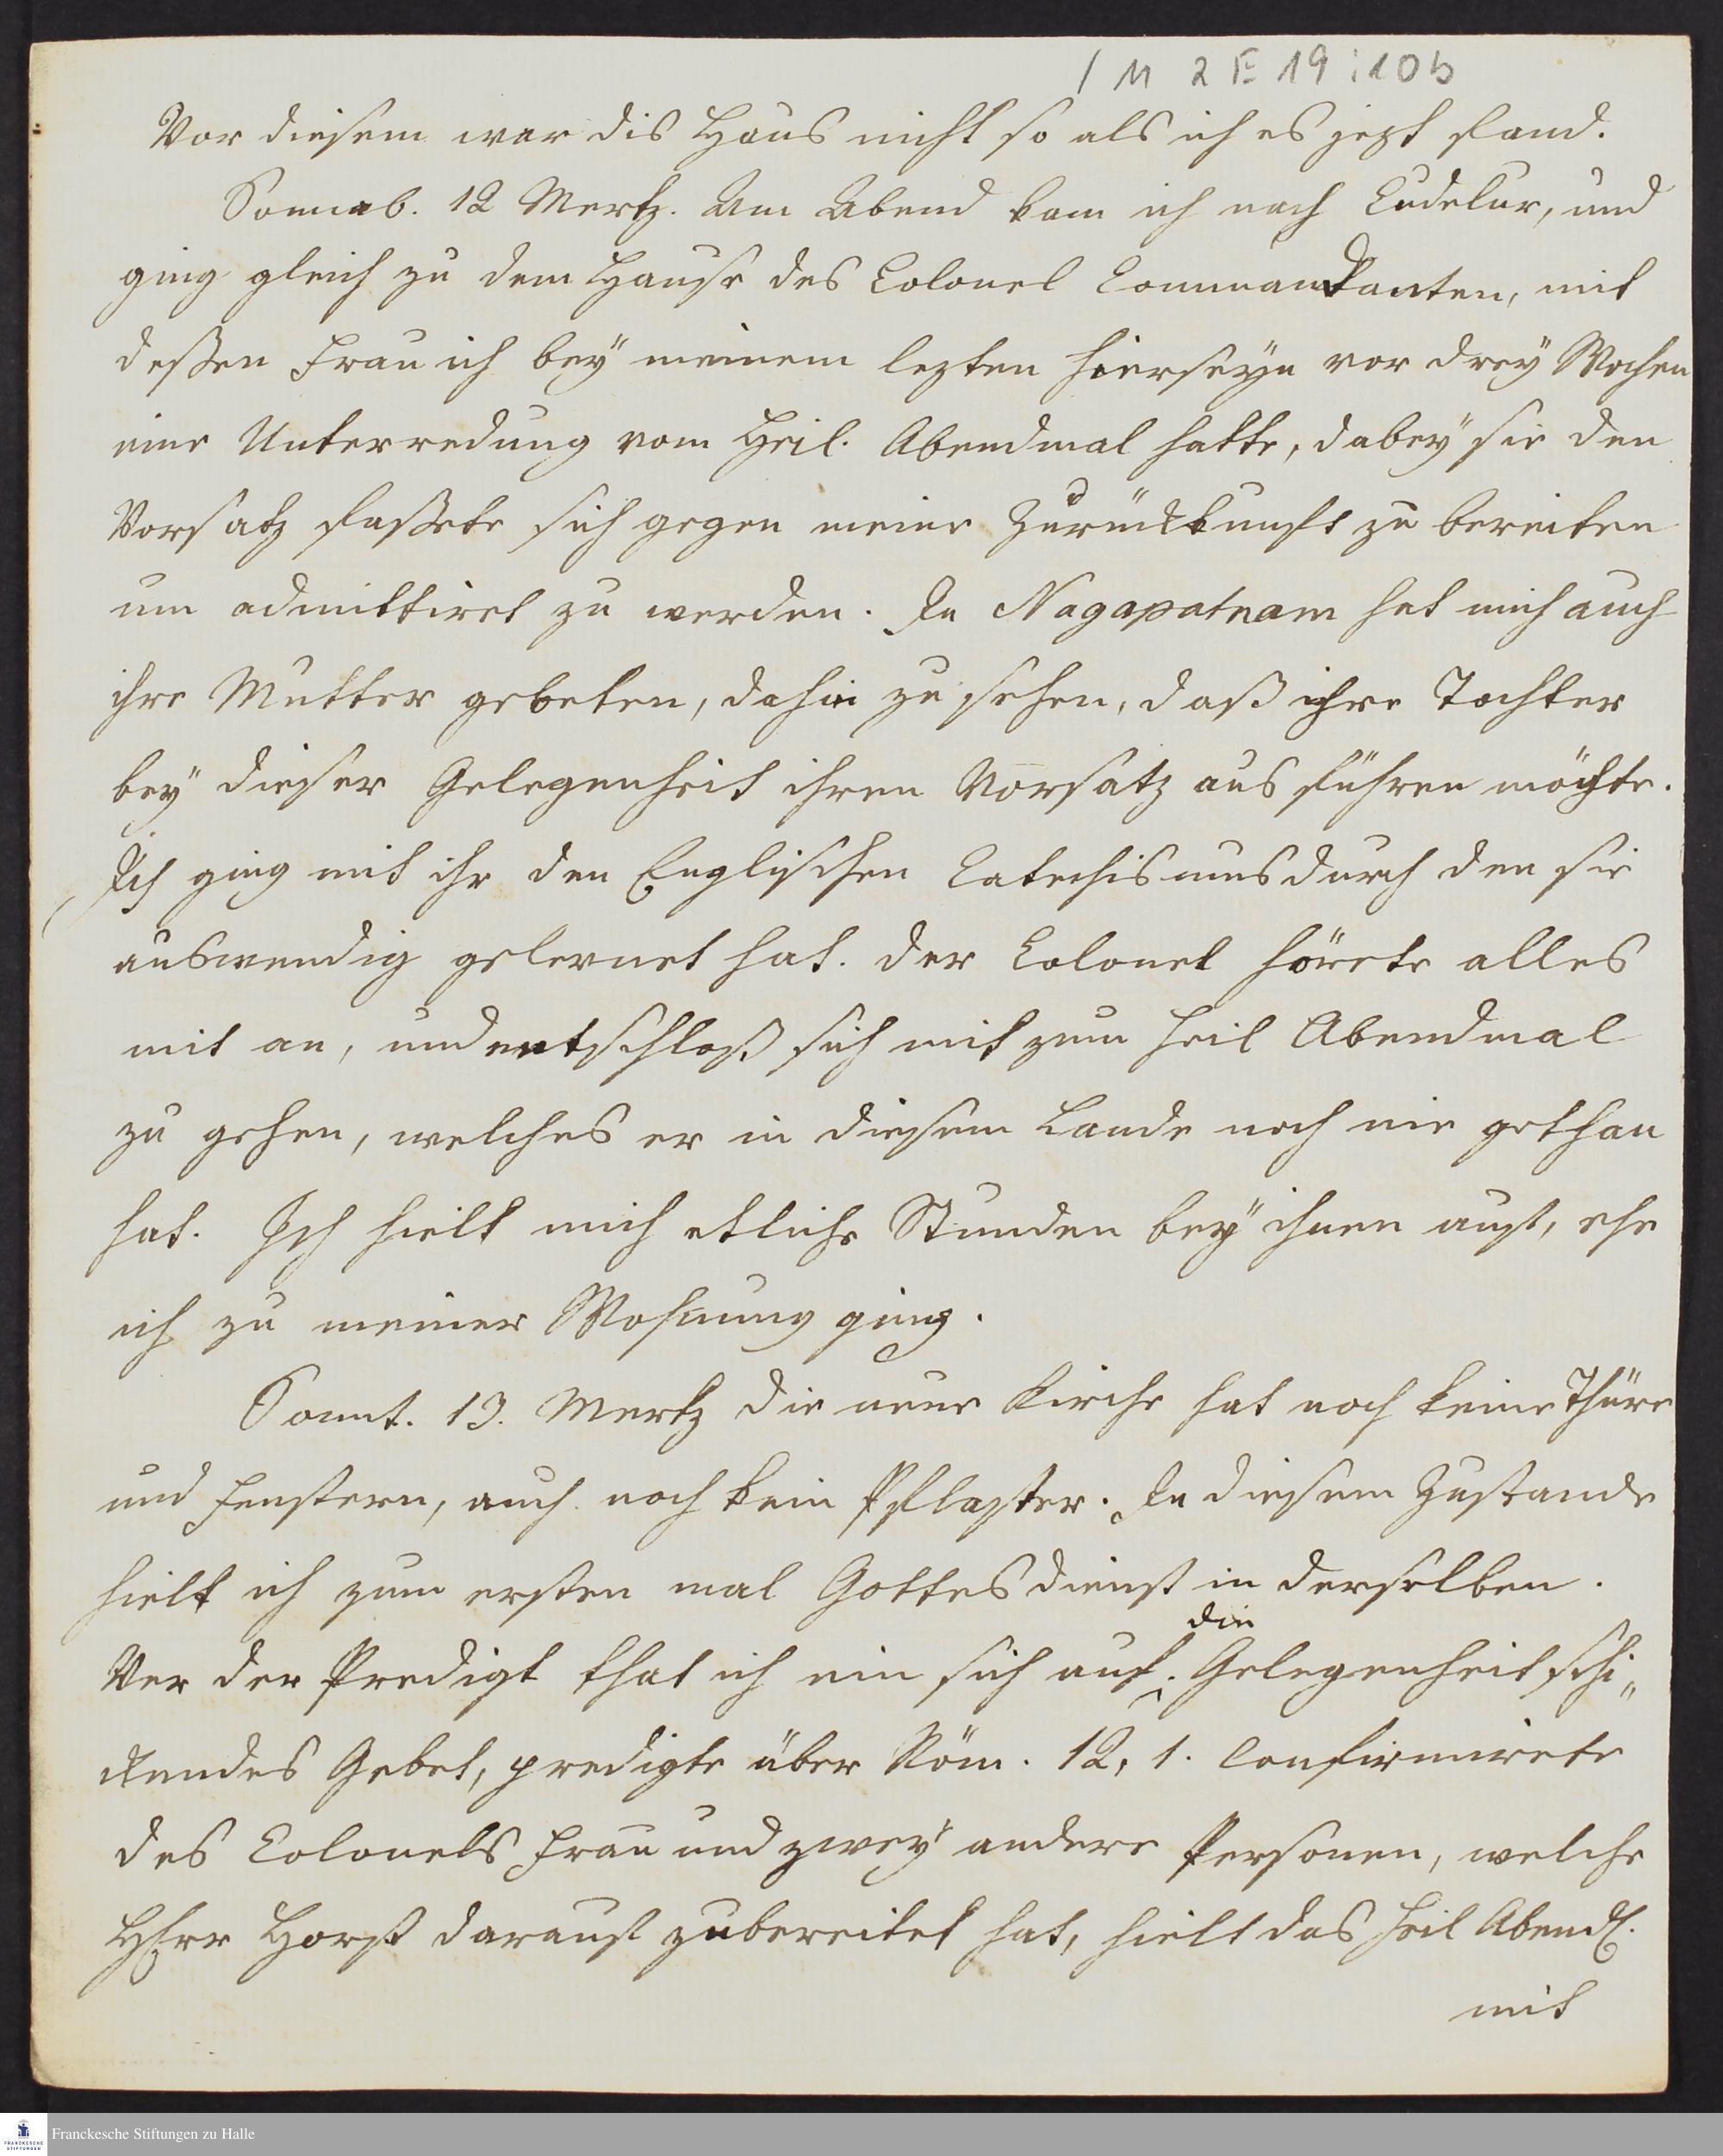 / M 2 E 19 : 10b
Vor diesem war dis Haus nicht so als ich es jezt fand.
Sonnab. 12 Mertz. Am Abend kam ich nach Cudelur, und
ging gleich zu dem Hause des Colonel Commandanten, mit
deßen Frau ich bey meinem lezten hierseyn vor drey Wochen
eine Unterredung vom Heil. Abendmal hatte, dabey sie den
Vorsatz faßete sich gegen meine Zurückkunft zu bereiten
um admittiret zu werden. In Nagapatnam hat mich auch
ihre Mutter gebeten, dahin zu sehen, daß ihre Tochter
bey dieser Gelegenheit ihren Vorsatz ausführen möchte.
Ich ging mit ihr den Englischen Catechismus durch den sie
auswendig gelernet hat. Der Colonel hörete alles
mit an, und entschloß sich mit zum heil Abendmal
zu gehen, welches er in diesem Lande noch nie gethan
hat. Ich hielt mich etliche Stunden bey ihnen auf, ehe
ich zu meiner Wohnung ging.
Sonnt. 13. Mertz die neue Kirche hat noch keine Thüre
und Fenstern, auch noch kein Pflaster. In diesem Zustande
hielt ich zum ersten mal Gottesdienst in derselben.
die
Vor der Predigt that ich ein sich auf Gelegenheit schi„
ckendes Gebet, predigte über Röm. 12, 1. Confirmirete
des Colonels Frau und zwey andere Personen, welche
HErr Horst darauf zubereitet hat, hielt das heil Abendl.
mit
Franckesche Stiftungen zu Halle
FRANCKESCHE
STIFTUNGEN